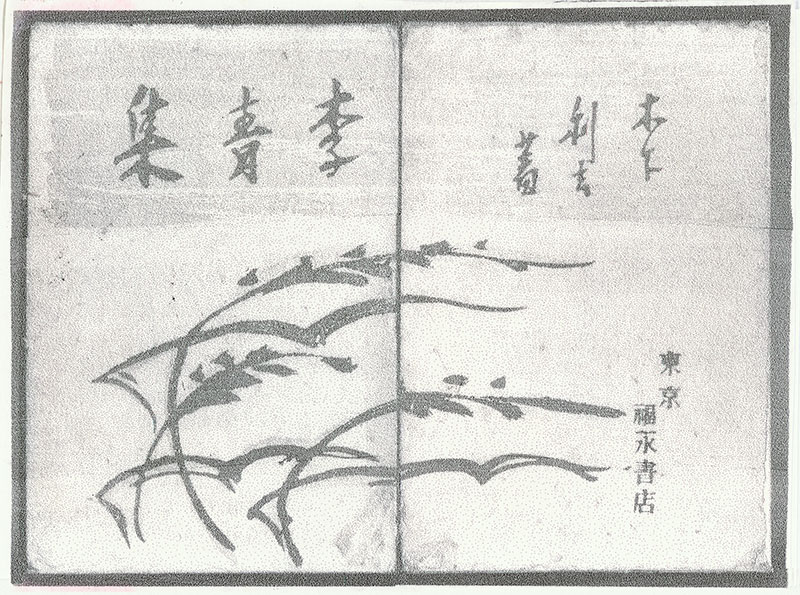 木下
利玄
著
東京
福永書店
李青集